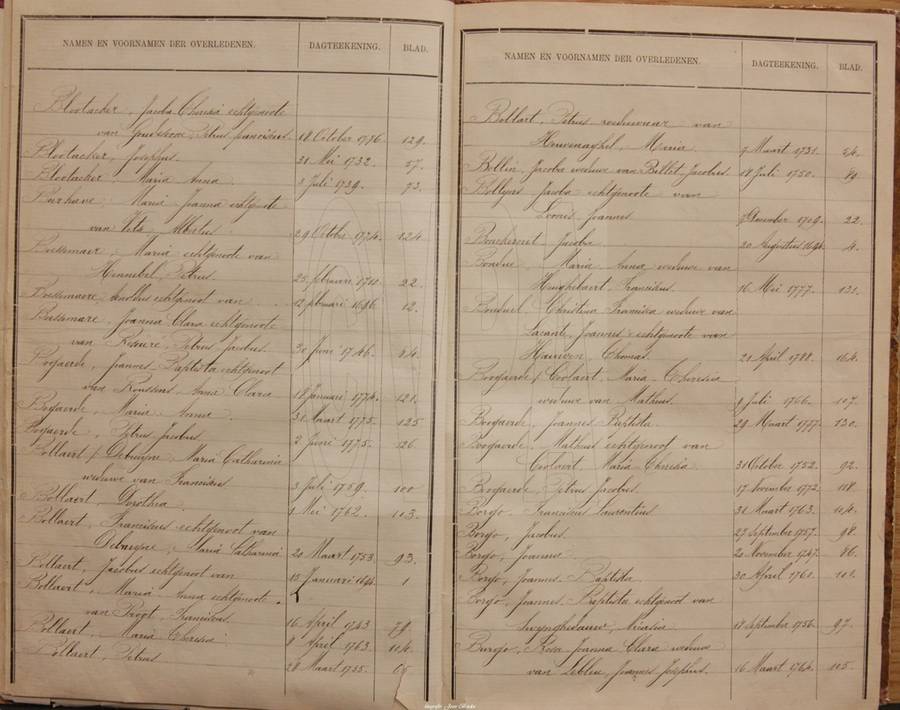 NAMEN EN VOORNAMEN DER OVERLEDENEN. DAGTEEKENING. BLAD.
Blootacker, Jacoba Theresia echtgenoote
van Petrus Franciscus 18 October 1736 129
Blootacker, Josephus 21 Mei 1732. 57.
Blootacker, Maria Anna 1 Juli 1739. 73.
Maria Joanna echtgenoote
van Albertus 29 October 1774. 124
Boessemaer, Maria echtgenoote van
Hennebel, Petrus 25 februari 22.
Boessemaere echtgenoot van 12 februari 1696 12.
Bossemare, Joanna Clara echtgenoote
van Petrus Jacobus 30 Juni 1746. 84.
Bogaerde, Joannes Baptista echtgenoot
van Roussens Anna Clara 18 Januari 1774. 121.
Bogaerde, Maria Anna 31 Maart 1775. 125
Bogaerde, Petrus Jacobus 2 Juni 1775. 126.
Bollaert / Debruyne, Maria Catharina
weduwe van Franciscus 3 Juli 1759. 100
Bollaert, Dorothea 1 Mei 1762. 103.
Bollaert, Franciscus echtgenoot van
Debruyne, Maria Catharina 20 Maart 1753 93.
Bollaert, Jacobus echtgenoot van 13 Januari 1694. 1
Bollaert, Maria Anna echtgenoote
van Franciscus 16 April 1743 79.
Bollaert, Maria Theresia 8 April 1763. 104.
Bollaert, Petrus 28 Maart 1735. 65
NAMEN EN VOORNAMEN DER OVERLEDENEN. DAGTEEKENING. BLAD.
Bollart, Petrus weduwnaar van
Maria 9 Maart 1731. 54.
Bollin, Jacoba weduwe van Billet Jacobus 18 Juli 1750.
Bollyns Jacoba echtgenoote van
Joannes December 1709. 22.
Jacoba 20 Augustus 1694. 4.
Bondue, Maria Anna weduwe van
Franciscus. 16 Mei 1777. 131.
Bonduel Christina Francisca weduwe van
Lacante, Joannes echtgenoote van
Thomas. 21 April 1788. 164.
Boogaerde / Coolaert, Maria Theresia
weduwe van Mathius. 9 Juli 1766. 107.
Boogaerde, Joannes Baptista 29 Maart 1777. 130.
Boogaerde, Mathius echtgenoot van
Coolaert, Maria Theresia 31 October 1752. 92.
Boogaerde, Petrus Jacobus 17 November 1772. 118.
Borgo, Franciscus Laurentius 31 Maart 1763. 104.
Borgo, Jacobus 27 September 1757. 98.
Borgo, Joanna 20 November 1747. 86.
Borgo, Joannes Baptista 30 April 1761. 102.
Borgo, Joannes Baptista echtgenoot van
Swynghedauw, 18 September 1756. 97.
Burgo, Rosa Joanna Clara weduwe
van Lebleu, Joannes Josephus. 16 Maart 1764. 105.